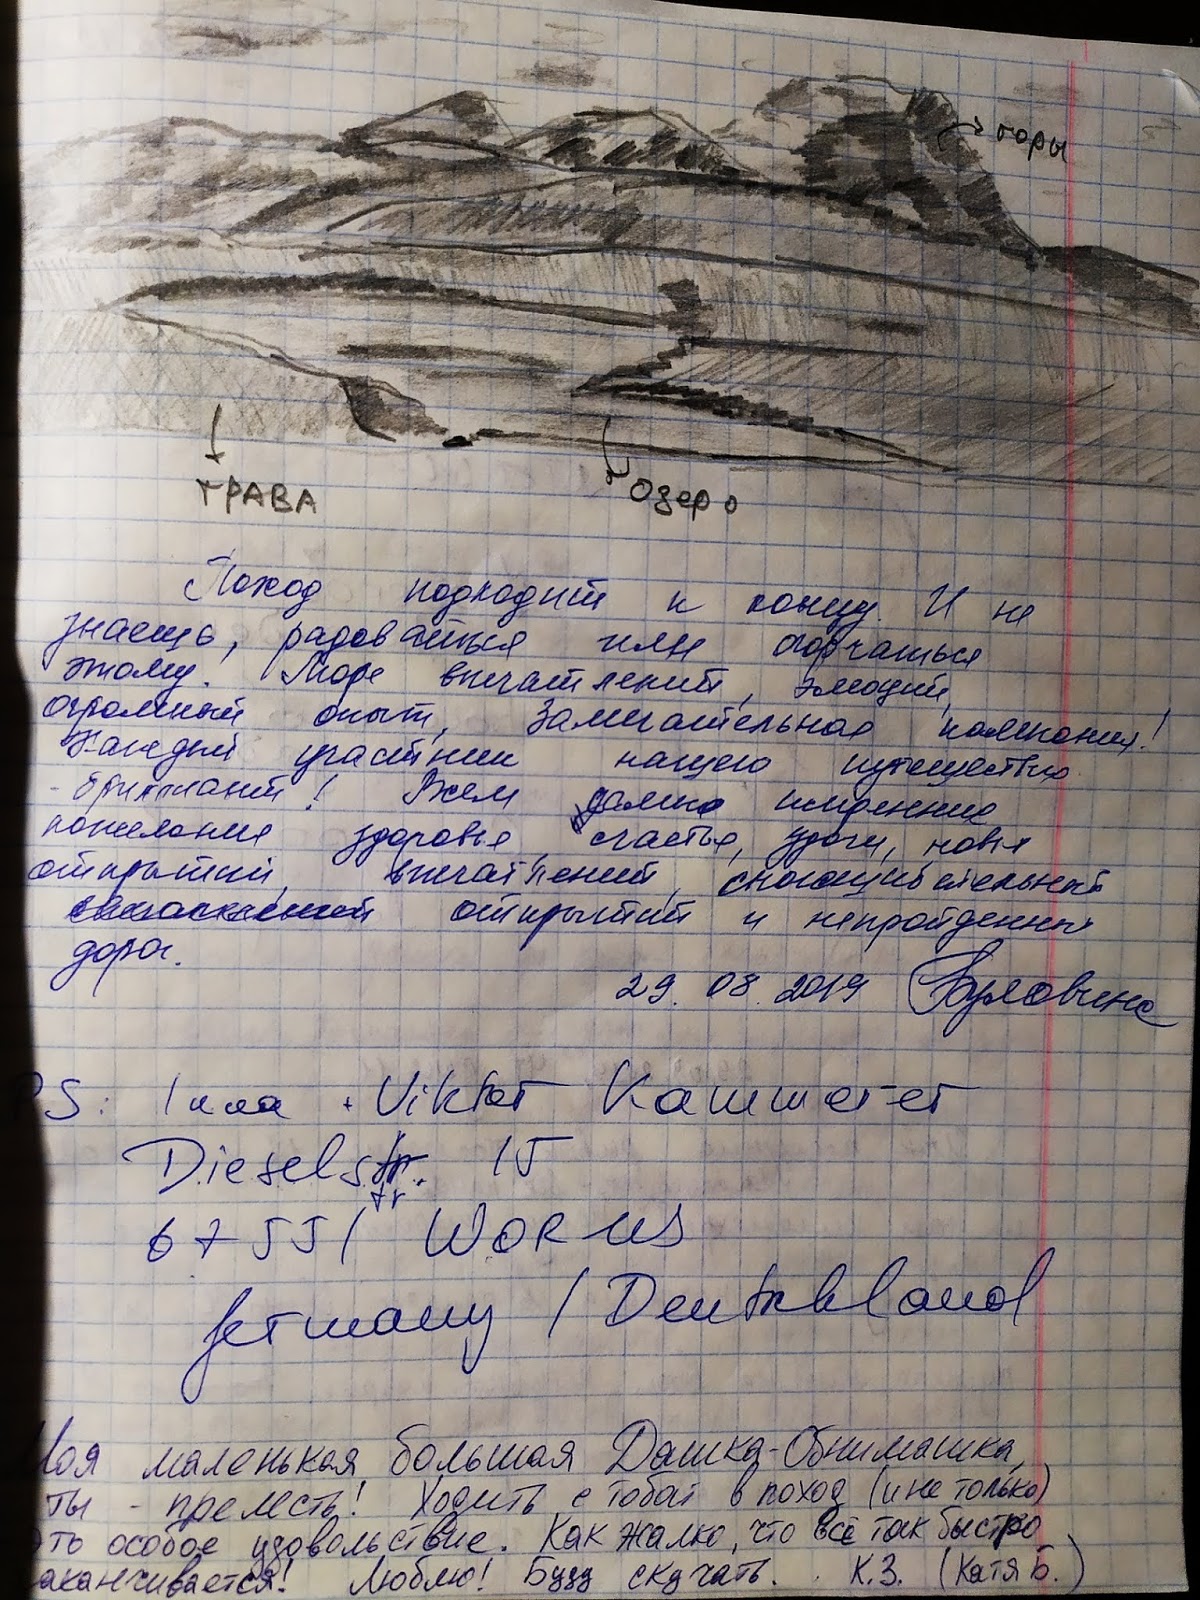 горы
трава
озеро
Поход подходит к концу. И не
знаешь, радоваться или огорчаться
этому! Море впечатлений, эмоций,
огромный опыт, замечательная компания!
Каждый участник нашего путешествия
- бриллиант! Всем искренние
пожелания здоровья, счастья, удачи, новых
открытий, впечатлений, сногсшибательных
открытий и непройденных
дорог.
29.08.2019
PS: Inna + Viktor
Dieselstr. 15
tr
67551 Worms
Germany / Deutschland
Моя маленькая большая Дашка-Обнимашка,
ты - прелесть! Ходить с тобой в поход (и не только)
это особое удовольствие. Как жалко, что всё так быстро
заканчивается! Люблю! Буду скучать. К.З. (Катя Б.)